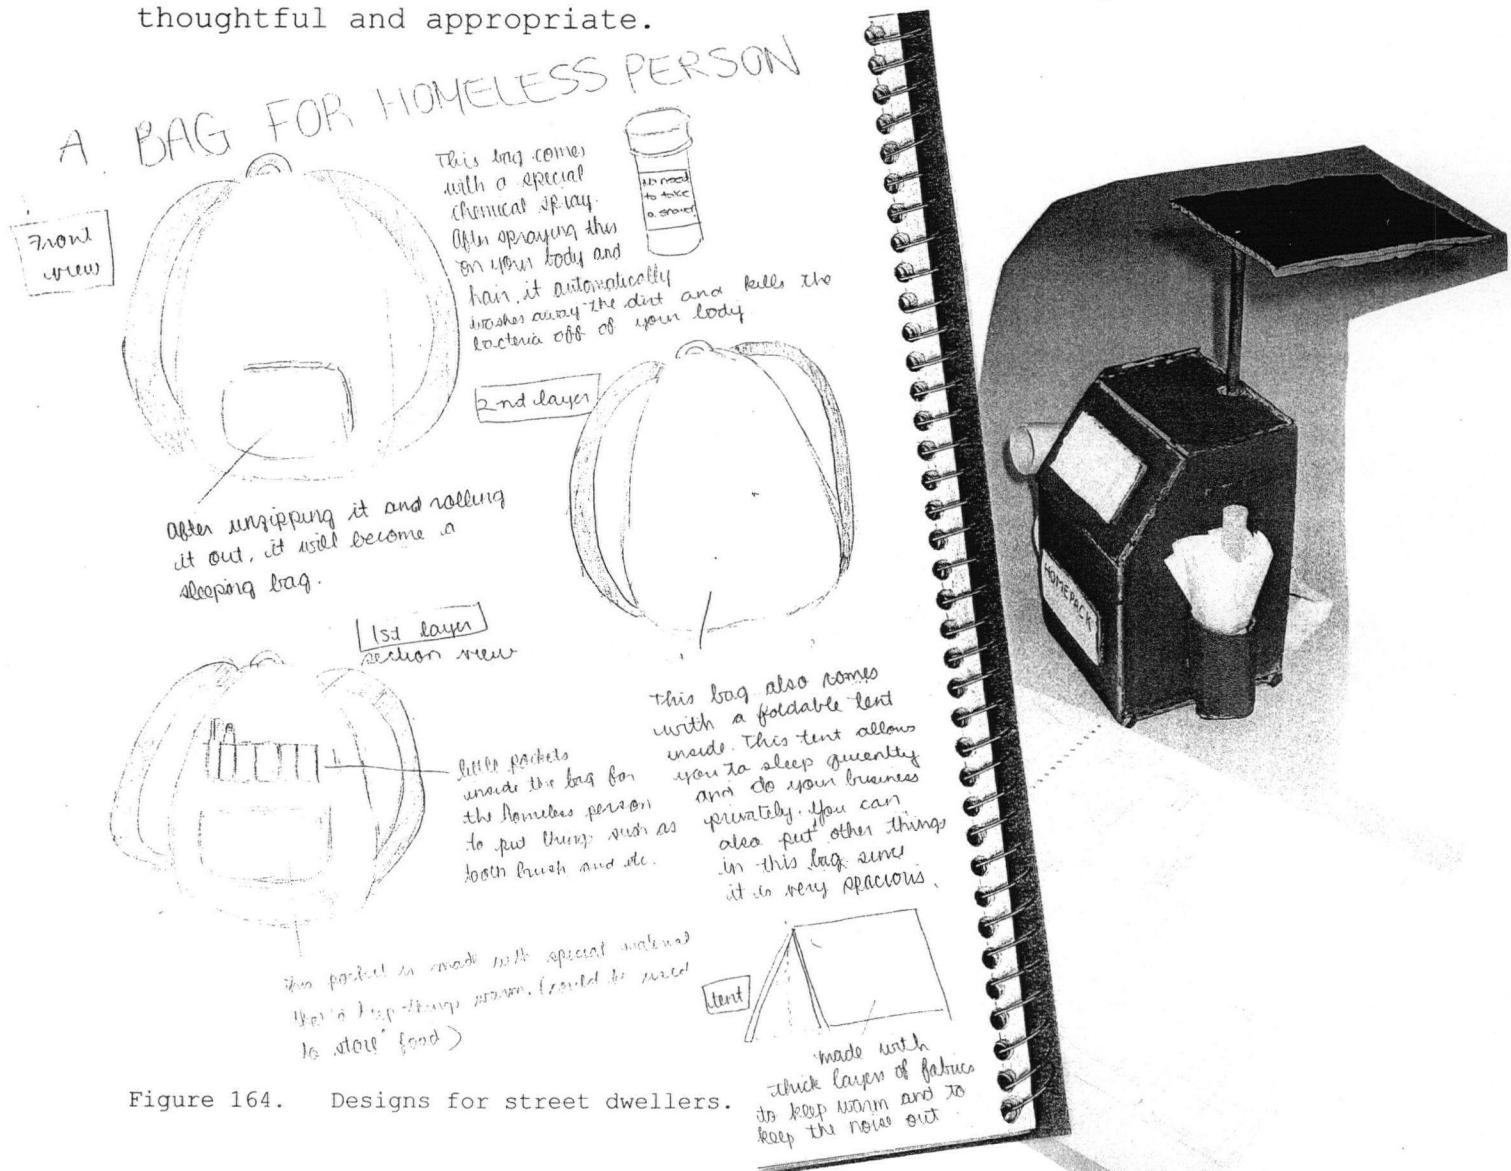 thoughtful and appropriate.
A BAG FOR HOMELESS PERSON
Front
view
This bag comes
with a special
chemical spray.
After spraying this
on your body and
hair, it automatically
washes away the dirt and kills the
bacteria off of your body
No need
to take
a
2nd layer
after unzipping it and rolling
it out, it will become a
sleeping bag.
1st layer
section view
little pockets
inside the bag for
the homeless person
to put things such as
tooth brush and etc.
This bag also comes
with a foldable tent
inside. This tent allows
you to sleep
and do your business
privately. You can
also put other things
in this bag since
it is very spacious.
this pocket is made with special material
keep things warm. (could be used
to store food)
tent
made with
thick layers of fabrics
to keep warm and to
keep the noise out
HOMEPACK
Figure 164. Designs for street dwellers.